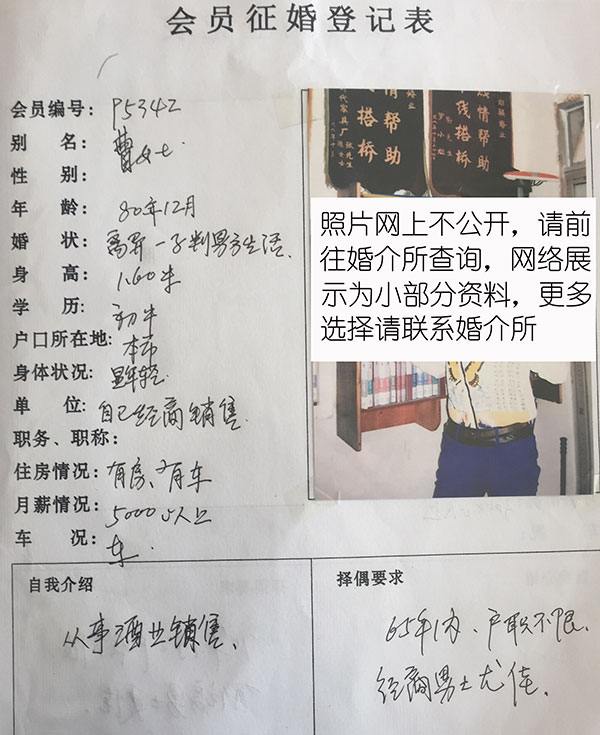 会员征婚登记表
会员编号: P5342
别 名: 曹女士
性 别:
年 龄: 80年12月
婚 状: 离异 一子判男方生活.
身 高: 1.60米
学 历: 初中
户口所在地: 本市
身体状况: 显年轻
单 位: 自己经商销售.
职务、职称:
住房情况: 有房、有车
月薪情况: 5000以上
车 况: 车.
情帮助
线搭桥
情帮助
线搭桥
照片网上不公开，请前
往婚介所查询，网络展
示为小部分资料，更多
选择请联系婚介所
自我介绍
从事酒业销售、
择偶要求
65年内、户职不限.
经商男士尤佳.